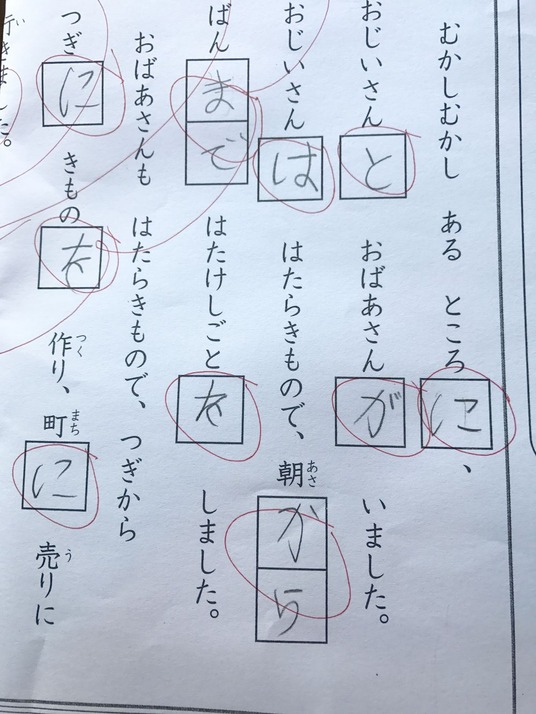 むかしむかし ある ところに、
おじいさんと おばあさんが いました。
おじいさんは はたらきもので、朝から
ばんまで はたけしごとを しました。
おばあさんも はたらきもので、つぎから
つぎに きものを 作り、町に 売りに
きました。